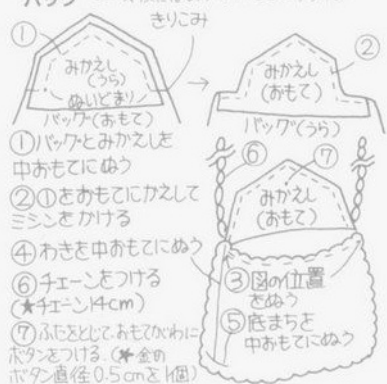 バッグ
きりこみ
①
みかえし
(うら)
ぬいどまり
バッグ(おもて)
②
みかえし
(おもて)
バッグ(うら)
①バッグとみかえしを
中おもてにぬう
②①をおもてにかえして
ミシンをかける
④わきを中おもてにぬう
⑥チェーンをつける
(★チェーン14cm)
⑦ふたをとじて、おもてがわに
ボタンをつける。(★金の
ボタン直径0.5cmを1個)
⑥
⑦
みかえし
(おもて)
③図の位置
をぬう
⑤底まちを
中おもてにぬう